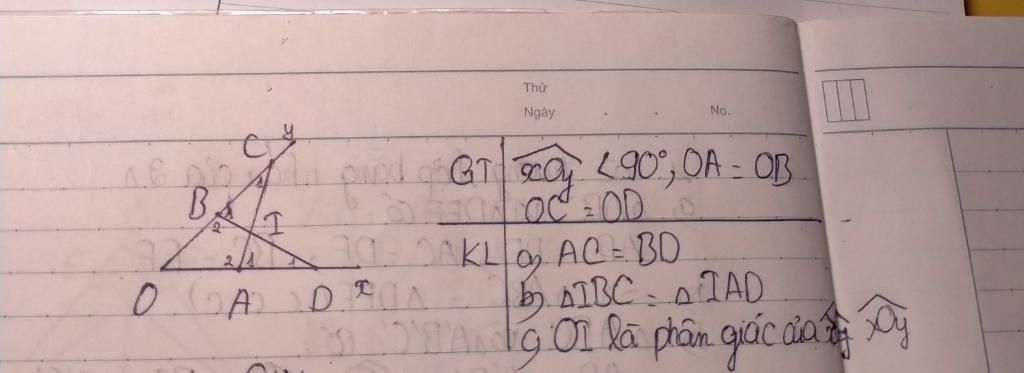 Thứ
Ngày . . No.
C y
B 1
2 I
1
2 1 1
O A D x
GT xOy < 90°, OA = OB
OC = OD
KL a, AC = BD
b, ΔIBC = ΔIAD
c, OI là phân giác của xOy